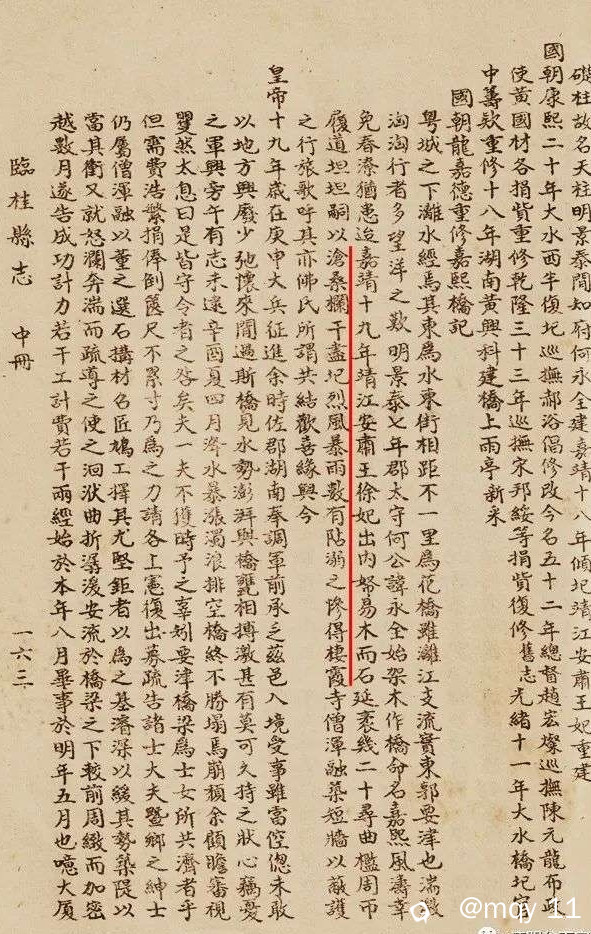 礎柱故名天柱明景泰間知府何永全建嘉靖十八年傾圮靖江安肅王妃重建
國朝康熙二十年大水西半復圮巡撫郝浴倡修改今名五十二年總督趙宏燦巡撫陳元龍布政
使黃國材各捐貲重修乾隆三十三年巡撫宋邦綏等捐貲復修舊志光緒十一年大水橋圮
中籌欵重修十八年湖南黃興科建橋上雨亭新采
國朝龍嘉德重修嘉熙橋記
粤城之下灕水經焉其東為水東街相距不一里為花橋雖灕江支流實東郭要津也湍激
淘淘行者多望洋之歎明景泰七年郡太守何公諱永全始架木作橋命名嘉熙風濤幸
免春潦猶患迨嘉靖十九年靖江安肅王徐妃出內帑易木而石延袤幾二十尋曲檻周帀
履道坦坦嗣以滄桑欄干盡圮烈風暴雨數有阽溺之慘得棲霞寺僧渾融築短牆以蔽護
之行旅歌呼其亦佛氏所謂共結歡喜緣與今
皇帝十九年歲在庚申大兵征進余時佐郡湖南奉調軍前承乏茲邑入境受事雖當倥傯未敢
以地方興廢少弛懷來聞過斯橋見水勢澎湃與橋甃相搏激甚有莫可久持之狀心竊憂
之軍興旁午有志未遑辛酉夏四月漭水暴漲濁浪排空橋終不勝塌焉崩頹余顧瞻審視
瞿然太息曰是皆守令者之咎矣夫一夫不獲時予之辜矧要津橋梁為士女所共濟者乎
但需費浩繁捐俸倒篋尺不累寸乃為之力請各上憲復出募疏告諸士大夫暨鄉之紳士
仍屬僧渾融以董之選石搆材名匠鳩工擇其尤堅鉅者以為之基濬深以緩其勢築隄以
當其衝又就怒瀾奔湍而疏導之使之洄洑曲折潺湲安流於橋梁之下較前周緻而加密
越數月遂告成功計力若干工計費若干兩經始於本年八月畢事於明年五月也噫大厦
臨桂縣志 中冊 一六三
@mqy_11